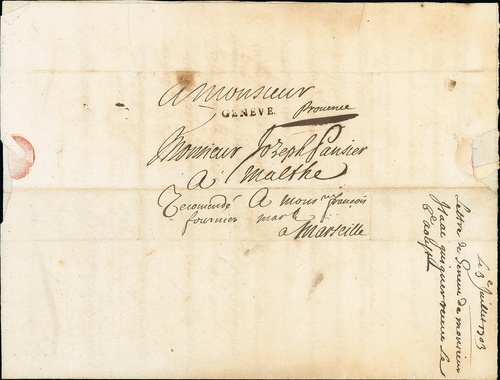 A Monsieur
GENEVE.
Provence
Monsieur Joseph Pansier
A Malthe
Recomendé A Mons.r françois
fournier march.
a Marseille
Le 3e Juillet 1703
Lettre de Geneve de monsieur
Isaac